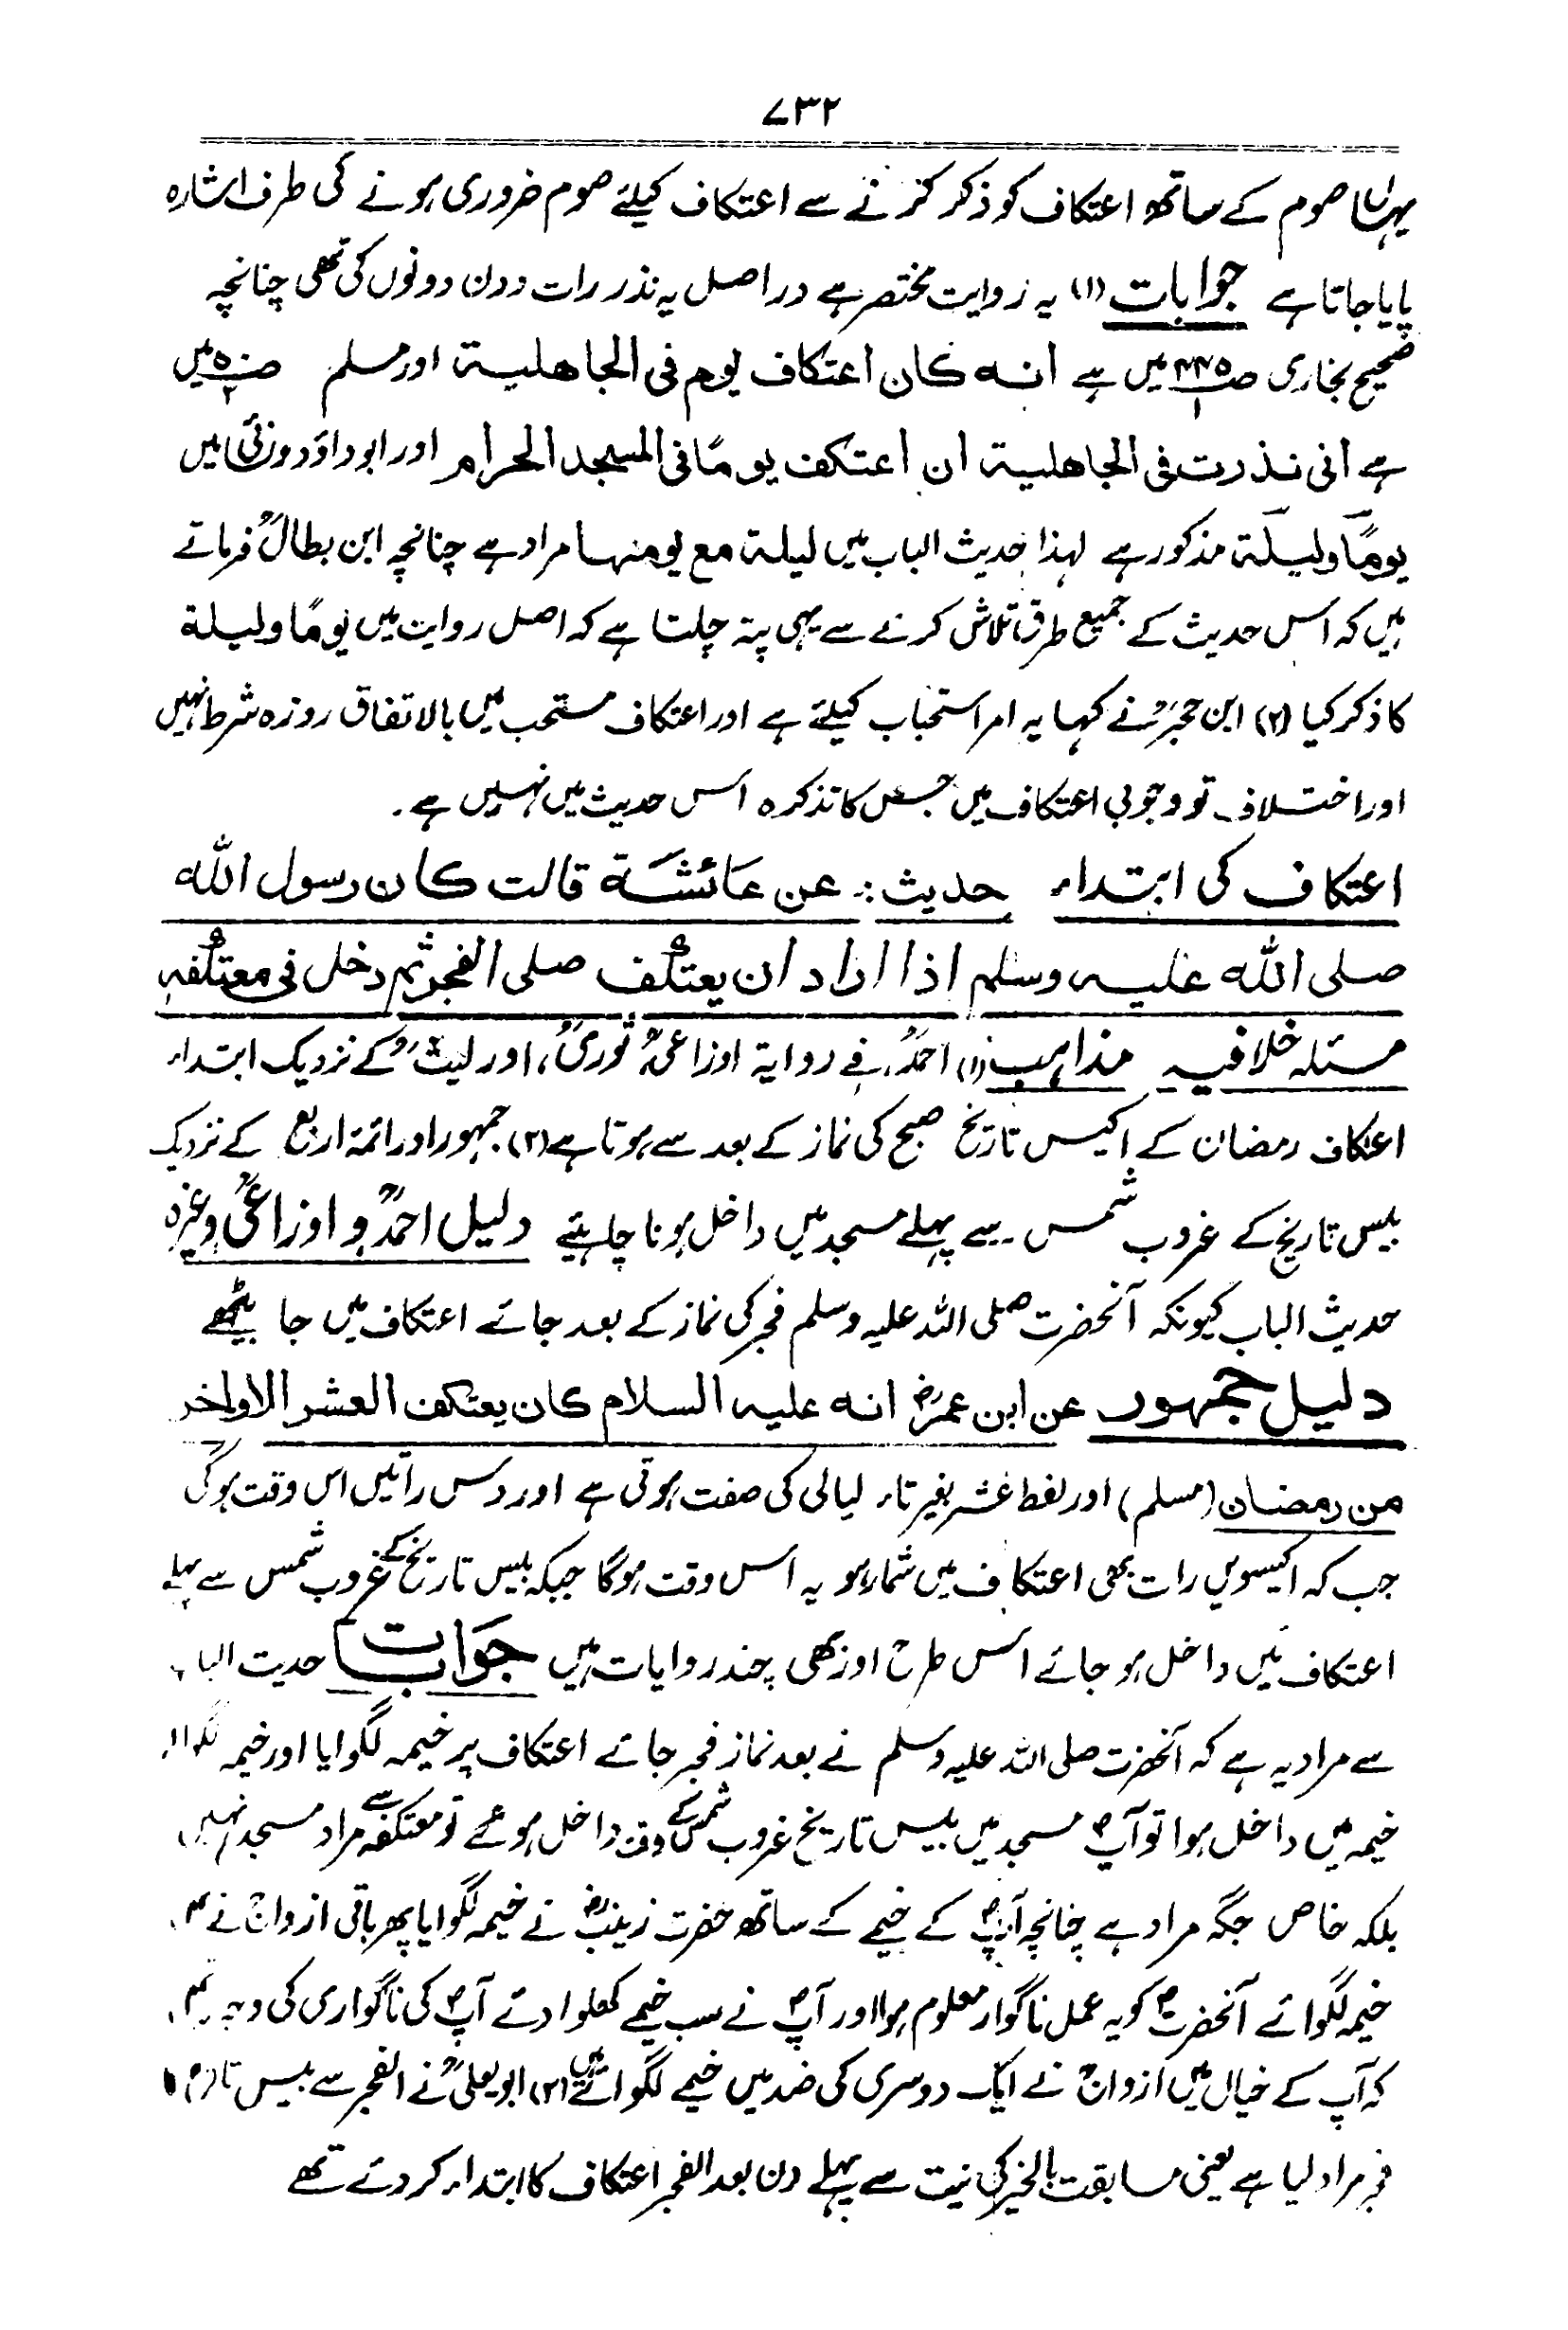 ۷۳۲
یہاں صوم کے ساتھ اعتکاف کو ذکر کرنے سے اعتکاف کیلئے صوم ضروری ہونے کی طرف اشارہ
پایا جاتا ہے جوابات (۱) یہ روایت مختصر ہے دراصل یہ نذر رات و دن دونوں کی تھی چنانچہ
صحیح بخاری صـ۴۴۵/۱ میں ہے انه كان اعتكاف يوم فى الجاهلية اور مسلم صـ۵۰/۲ میں
ہے انى نذرت فى الجاهلية ان اعتكف يومًا فى المسجد الحرام اور ابوداؤد و نسائی میں
يومًا وليلة مذکور ہے لہذا حدیث الباب میں لیلة مع يومنها مراد ہے چنانچہ ابن بطالؒ فرماتے
ہیں کہ اس حدیث کے جمیع طرق تلاش کرنے سے یہی پتہ چلتا ہے کہ اصل روایت میں یومًا ولیلة
کا ذکر کیا (۲) ابن حجرؒ نے کہا یہ امر استحباب کیلئے ہے اور اعتکاف مستحب میں بالاتفاق روزہ شرط نہیں
اور اختلاف تو وجوبی اعتکاف میں جس کا تذکرہ اس حدیث میں نہیں ہے۔
اعتکاف کی ابتداء حدیث:۔ عن عائشة قالت كان رسول الله
صلى الله عليه وسلم اذا اراد ان يعتكف صلى الفجر ثم دخل فى معتكفه
مسئلہ خلافیہ مذاہب (۱) احمدؒ فی روایة اوزاعیؒ، ثوریؒ، اور لیثؒ کے نزدیک ابتداء
اعتکاف رمضان کے اکیس تاریخ صبح کی نماز کے بعد سے ہوتا ہے (۲) جمہور اور ائمۃ اربع کے نزدیک
بیس تاریخ کے غروب شمس سے پہلے مسجد میں داخل ہونا چاہئیے دلیل احمدؒ و اوزاعیؒ وغیرہ
حدیث الباب کیونکہ آنحضرت صلی اللہ علیہ وسلم فجر کی نماز کے بعد جائے اعتکاف میں جا بیٹھے
دلیل جمہور عن ابن عمرؓ انه عليه السلام كان يعتكف العشر الاواخر
من رمضان (مسلم) اور لفظ عشر بغیر تاء لیالی کی صفت ہوتی ہے اور دس راتیں اس وقت ہوگی
جب کہ اکیسویں رات بھی اعتکاف میں شمار ہو یہ اس وقت ہوگا جبکہ بیس تاریخ کے غروب شمس سے پہلے
اعتکاف میں داخل ہو جائے اس طرح اور بھی چند روایات ہیں جوابات حدیث الباب
سے مراد یہ ہے کہ آنحضرت صلی اللہ علیہ وسلم نے بعد نماز فجر جائے اعتکاف پر خیمہ لگوایا اور خیمہ
خیمہ میں داخل ہوا تو آپؐ مسجد میں بیس تاریخ غروب شمس کے وقت داخل ہوئے تو معتکفہ سے مراد مسجد نہیں
بلکہ خاص جگہ مراد ہے چنانچہ آپؐ کے خیمے کے ساتھ حضرت زینبؓ نے خیمہ لگوایا پھر باقی ازواجؓ نے
خیمہ لگوائے آنحضرتؐ کو یہ عمل ناگوار معلوم ہوا اور آپؐ نے سب خیمے کھلوا دئے آپؐ کی ناگواری کی وجہ
کہ آپ کے خیال میں ازواجؓ نے ایک دوسری کی ضد میں خیمے لگوائے ہیں (۲) ابو یعلیؒ نے الفجر سے بیس تاریخ
فجر مراد لیا ہے یعنی مسابقت بالخیر کی نیت سے پہلے دن بعد الفجر اعتکاف کا ابتداء کر دئے تھے